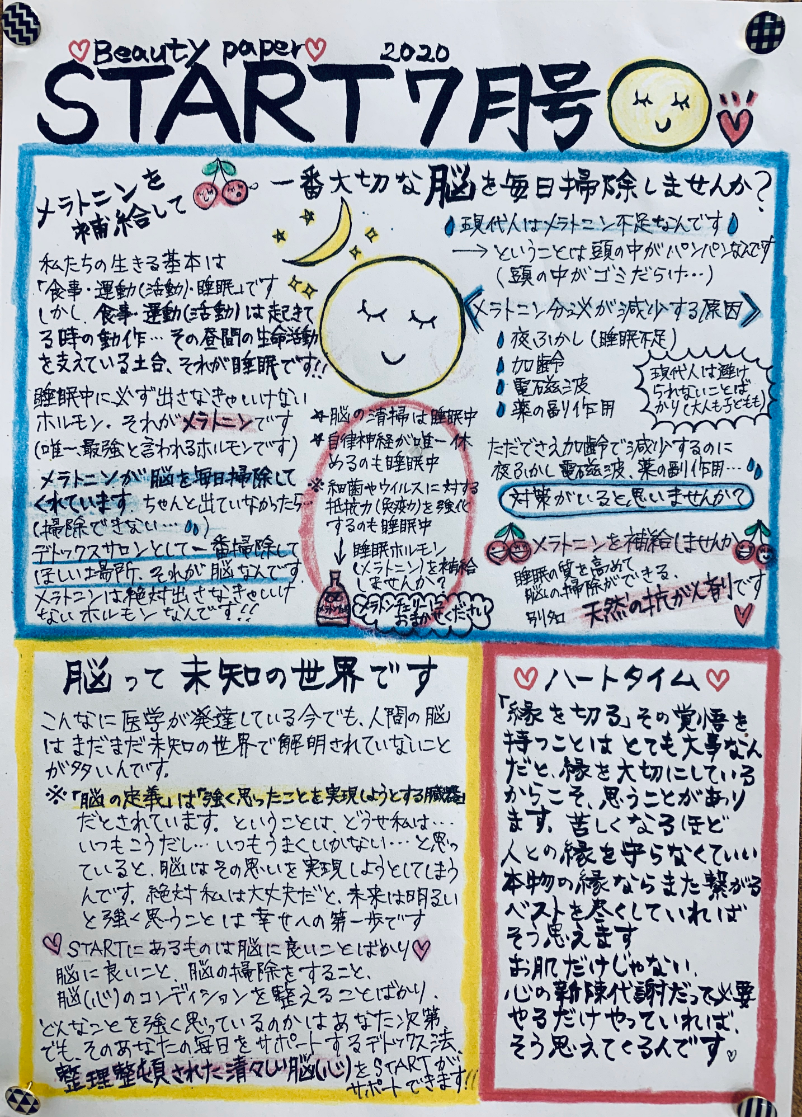 ♡Beauty paper♡ 2020
START 7月号
メラトニンを
補給して
一番大切な脳を毎日掃除しませんか?
私たちの生きる基本は
「食事・運動(活動)・睡眠」です
しかし、食事・運動(活動)は起きて
る時の動作…その昼間の生命活動
を支えている土台、それが睡眠です!!
睡眠中に必ず出さなきゃいけない
ホルモン、それがメラトニンです
(唯一、最強と言われるホルモンです)
メラトニンが脳を毎日掃除して
くれています ちゃんと出ていなかったら…
(掃除できない…)
デトックスサロンとして一番掃除して
ほしい場所、それが脳なんです
メラトニンは絶対出さなきゃいけ
ないホルモンなんです!!
★脳の清掃は睡眠中
★自律神経が唯一休
めるのも睡眠中
※細菌やウイルスに対する
抵抗力(免疫力)を強化
するのも睡眠中
↓ 睡眠ホルモン
(メラトニン)を補給
しませんか?
メラトンチェリーに
おまかせください
現代人はメラトニン不足なんです
→ということは頭の中がパンパンなんです
(頭の中がゴミだらけ…)
《メラトニン分泌が減少する原因》
夜ふかし(睡眠不足)
加齢
電磁波
薬の副作用
現代人は避け
られないことば
かり(大人も子どもも)
ただでさえ加齢で減少するのに
夜ふかし電磁波、薬の副作用…
対策がいると思いませんか?
メラトニンを補給しませんか
睡眠の質を高めて
脳の掃除ができる、
別名 天然の抗がん剤です
脳って未知の世界です
こんなに医学が発達している今でも、人間の脳
はまだまだ未知の世界で解明されていないこと
が多いんです。
※「脳の定義」は「強く思ったことを実現しようとする臓器」
だとされています。ということは、どうせ私は…
いつもこうだし…いつもうまくいかない…と思っ
ていると、脳はその思いを実現しようとしてしまう
んです。絶対私は大丈夫だと、未来は明るい
と強く思うことは幸せへの第一歩です
♡STARTにあるものは脳に良いことばかり♡
脳に良いこと、脳の掃除をすること、
脳(心)のコンディションを整えることばかり、
どんなことを強く思っているのかはあなた次第
でも、そのあなたの毎日をサポートするデトックス法、
整理整頓された清々しい脳(心)をSTARTが
サポートできます!!
♡ハートタイム♡
「縁を切る」その覚悟を
持つことはとても大事なん
だと、縁を大切にしている
からこそ、思うことがあり
ます、苦しくなるほど
人との縁を守らなくていい
本物の縁ならまた繋がる
ベストを尽くしていれば
そう思えます
お肌だけじゃない、
心の新陳代謝だって必要
やるだけやっていれば、
そう思えてくるんです♡